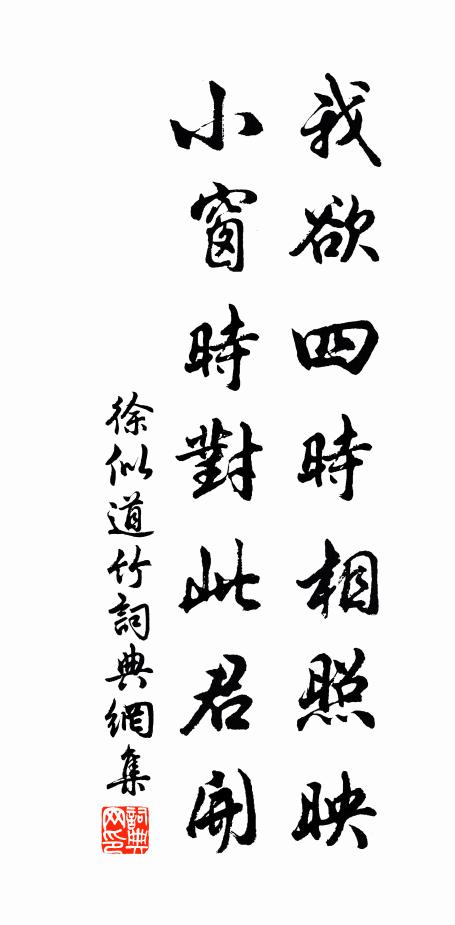 我欲四時相照映
小窗時對此君開
徐似道竹詞典網集
詞典網印